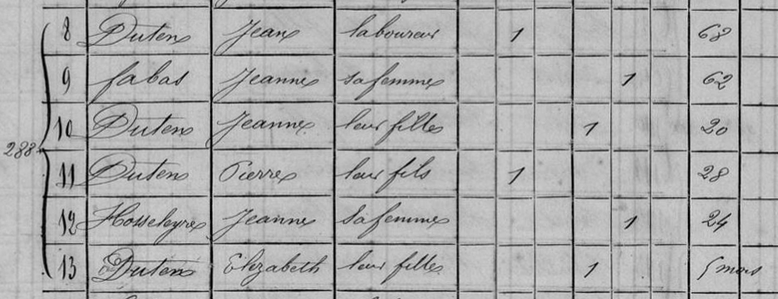 8 Duten Jean laboureur 1 68
9 fabas Jeanne sa femme 1 62
10 Duten Jeanne leur fille 1 20
288
11 Duten Pierre leur fils 1 28
12 Hosseleyre Jeanne Sa femme 1 24
13 Duten Elizabeth leur fille 1 5 mois